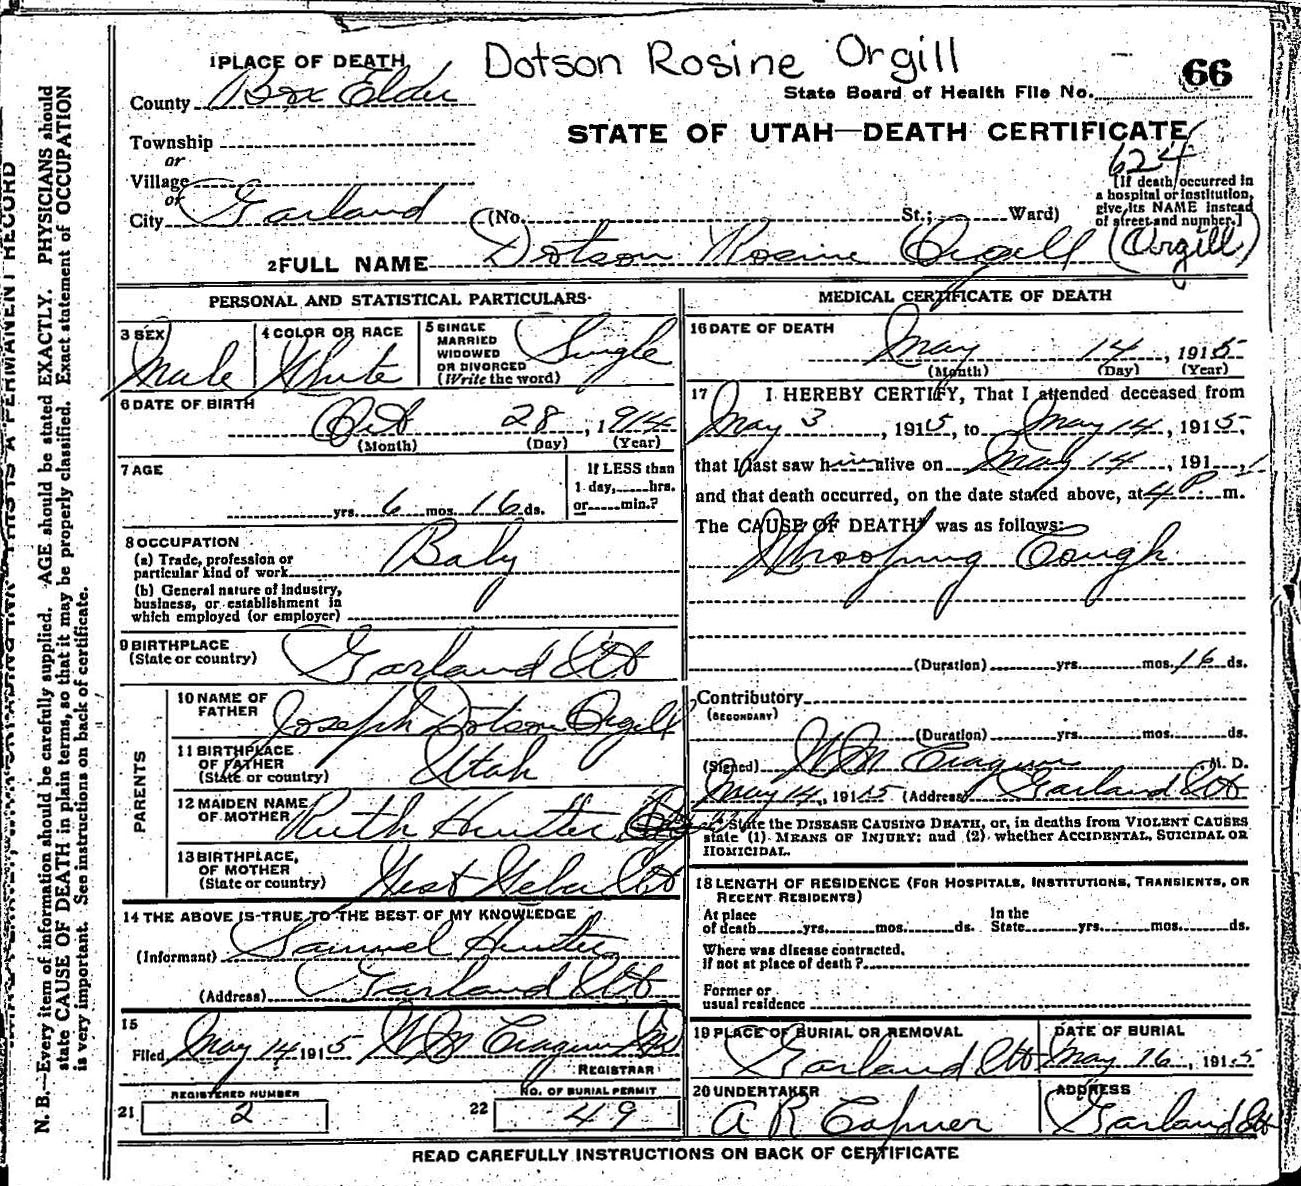 Dotson Rosine Orgill
1 PLACE OF DEATH
66
County Box Elder
State Board of Health File No.
Township
STATE OF UTAH—DEATH CERTIFICATE
or
624
Village
[If death occurred in
a hospital or institution,
give its NAME instead
of street and number.]
or
City Garland (No. St.; Ward)
2 FULL NAME Dotson Rosine Orgill (Orgill)
PERSONAL AND STATISTICAL PARTICULARS
3 SEX
Male
4 COLOR OR RACE
White
5 SINGLE
MARRIED
WIDOWED
OR DIVORCED
(Write the word)
Single
6 DATE OF BIRTH
Oct 28, 1914
(Month) (Day) (Year)
7 AGE
yrs. 6 mos. 16 ds.
If LESS than
1 day, hrs.
or min.?
8 OCCUPATION
(a) Trade, profession or
particular kind of work Baby
(b) General nature of industry,
business, or establishment in
which employed (or employer)
9 BIRTHPLACE
(State or country) Garland Ut
PARENTS
10 NAME OF
FATHER Joseph Dotson Orgill
11 BIRTHPLACE
OF FATHER
(State or country) Utah
12 MAIDEN NAME
OF MOTHER Ruth Hunter
13 BIRTHPLACE,
OF MOTHER
(State or country) West Weber Ut
14 THE ABOVE IS TRUE TO THE BEST OF MY KNOWLEDGE
(Informant) Samuel Hunter
(Address) Garland Ut
15
Filed May 14 1915 WM Cragun MD
REGISTRAR
REGISTERED NUMBER
21 2
NO. OF BURIAL PERMIT
22 49
MEDICAL CERTIFICATE OF DEATH
16 DATE OF DEATH
May 14, 1915
(Month) (Day) (Year)
17 I HEREBY CERTIFY, That I attended deceased from
May 3, 1915, to May 14, 1915,
that I last saw him alive on May 14, 191
and that death occurred, on the date stated above, at 4 P. m.
The CAUSE OF DEATH* was as follows:
Whooping Cough
(Duration) yrs. mos. 16 ds.
Contributory
(SECONDARY)
(Duration) yrs. mos. ds.
(Signed) WM Cragun M. D.
May 14, 1915 (Address) Garland Ut
State the DISEASE CAUSING DEATH, or, in deaths from VIOLENT CAUSES
state (1) MEANS OF INJURY; and (2) whether ACCIDENTAL, SUICIDAL OR
HOMICIDAL.
18 LENGTH OF RESIDENCE (FOR HOSPITALS, INSTITUTIONS, TRANSIENTS, OR
RECENT RESIDENTS)
At place
of death yrs. mos. ds.
In the
State yrs. mos. ds.
Where was disease contracted,
if not at place of death?
Former or
usual residence
19 PLACE OF BURIAL OR REMOVAL
Garland Ut
DATE OF BURIAL
May 16, 1915
20 UNDERTAKER
A R Capner
ADDRESS
Garland Ut
READ CAREFULLY INSTRUCTIONS ON BACK OF CERTIFICATE
N. B.—Every item of information should be carefully supplied. AGE should be stated EXACTLY. PHYSICIANS should
state CAUSE OF DEATH in plain terms, so that it may be properly classified. Exact statement of OCCUPATION
is very important. See instructions on back of certificate.
THIS IS A PERMANENT RECORD